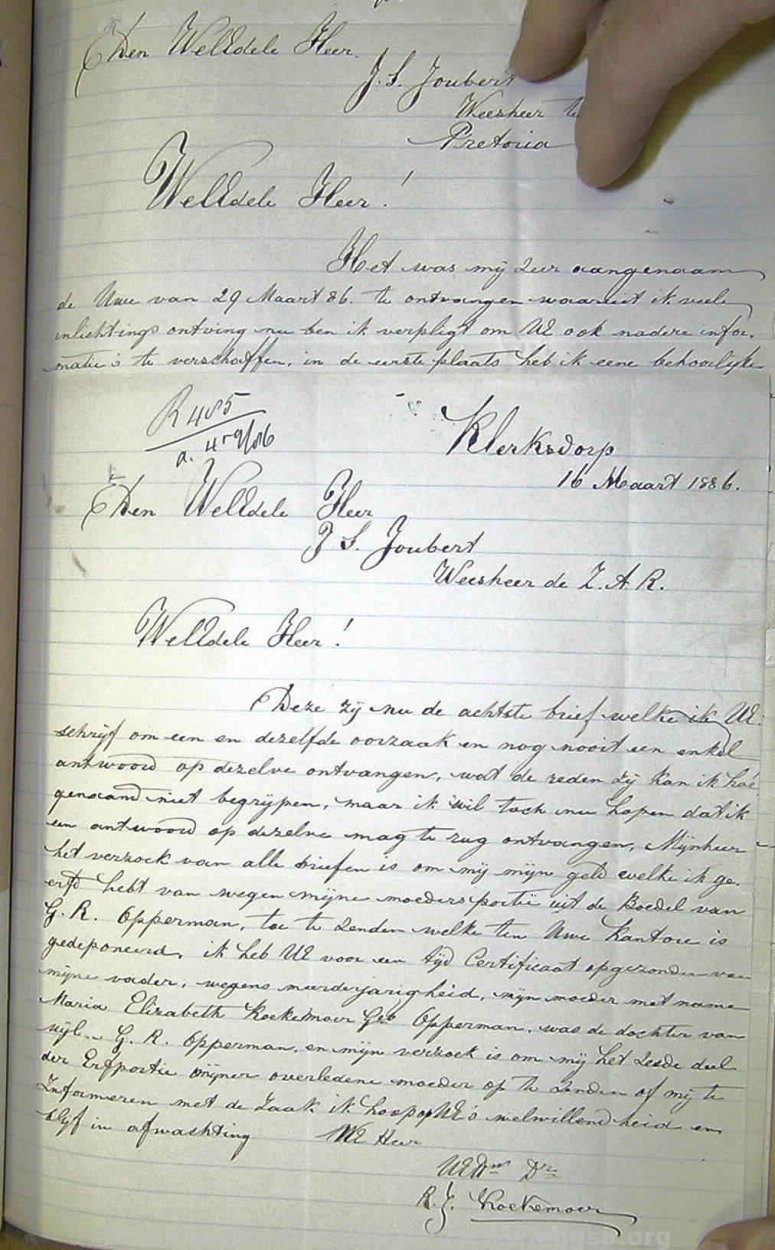 Den WelEdele Heer
J. S. Joubert
Weesheer te
Pretoria
WelEdele Heer!
Het was mij zeer aangenaam
de Uwe van 29 Maart 86. te ontvangen waaruit ik veele
inlichtings ontving nu ben ik verpligt om UE ook nadere infor-
matie's te verschaffen, in de eerste plaats heb ik eene behoorlijke
R485
a. 479/86
Klerksdorp
16 Maart 1886.
Den WelEdele Heer
J S. Joubert
Weesheer de Z. A R.
WelEdele Heer!
Deze zij nu de achtste brief welke ik UE.
schrijf om een en dezelfde oorzaak en nog nooit een enkel
antwoord op dezelve ontvangen, wat de reden zij kan ik hoe
genaamd niet begrijpen, maar ik wil toch nu hopen dat ik
een antwoord op dezelve mag te rug ontvangen, Mijnheer
het verzoek van alle briefen is om mij mijn geld welke ik ge-
erfd hebt van wegen mijne moedersportie uit de Boedel van
G. R. Opperman, toe te zenden welke ten Uwe kantore is
gedeponeerd, ik heb UE voor een tijd Certificaat opgezonden van
mijne vader, wegens meerderjarigheid, mijn moeder met name
Maria Elizabeth Koekemoer geb Opperman, was de dochter van
wijl. G. R. Opperman, en mijn verzoek is om mij het zesde deel
der Erfportie mijner overledene moeder op te zenden of mij te
Informeren met de zaak ik hoop op UE's welwillendheid en
blijf in afwachting WE Heer
UEDw Dr
R. J. Koekemoer